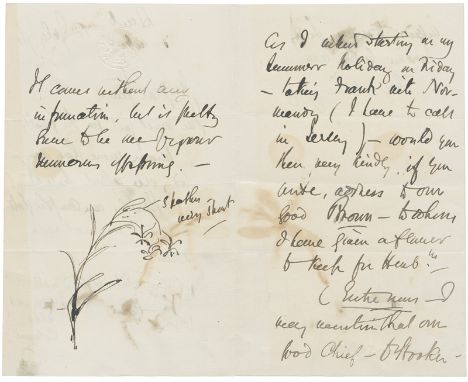 It comes without any
information, but is pretty
sure to be one of your
numerous offspring. —
spathes
very short
As I intend starting on my
summer holiday on Friday
— taking Frank into Nor-
mandy (I have to call
in Jersey) — would you
then, very kindly, if you
write, address to our
good Brown — to whom
I have given a flower
to keep for Herb.m —
(Entre nous — I
may mention that our
good Chief — Hooker —